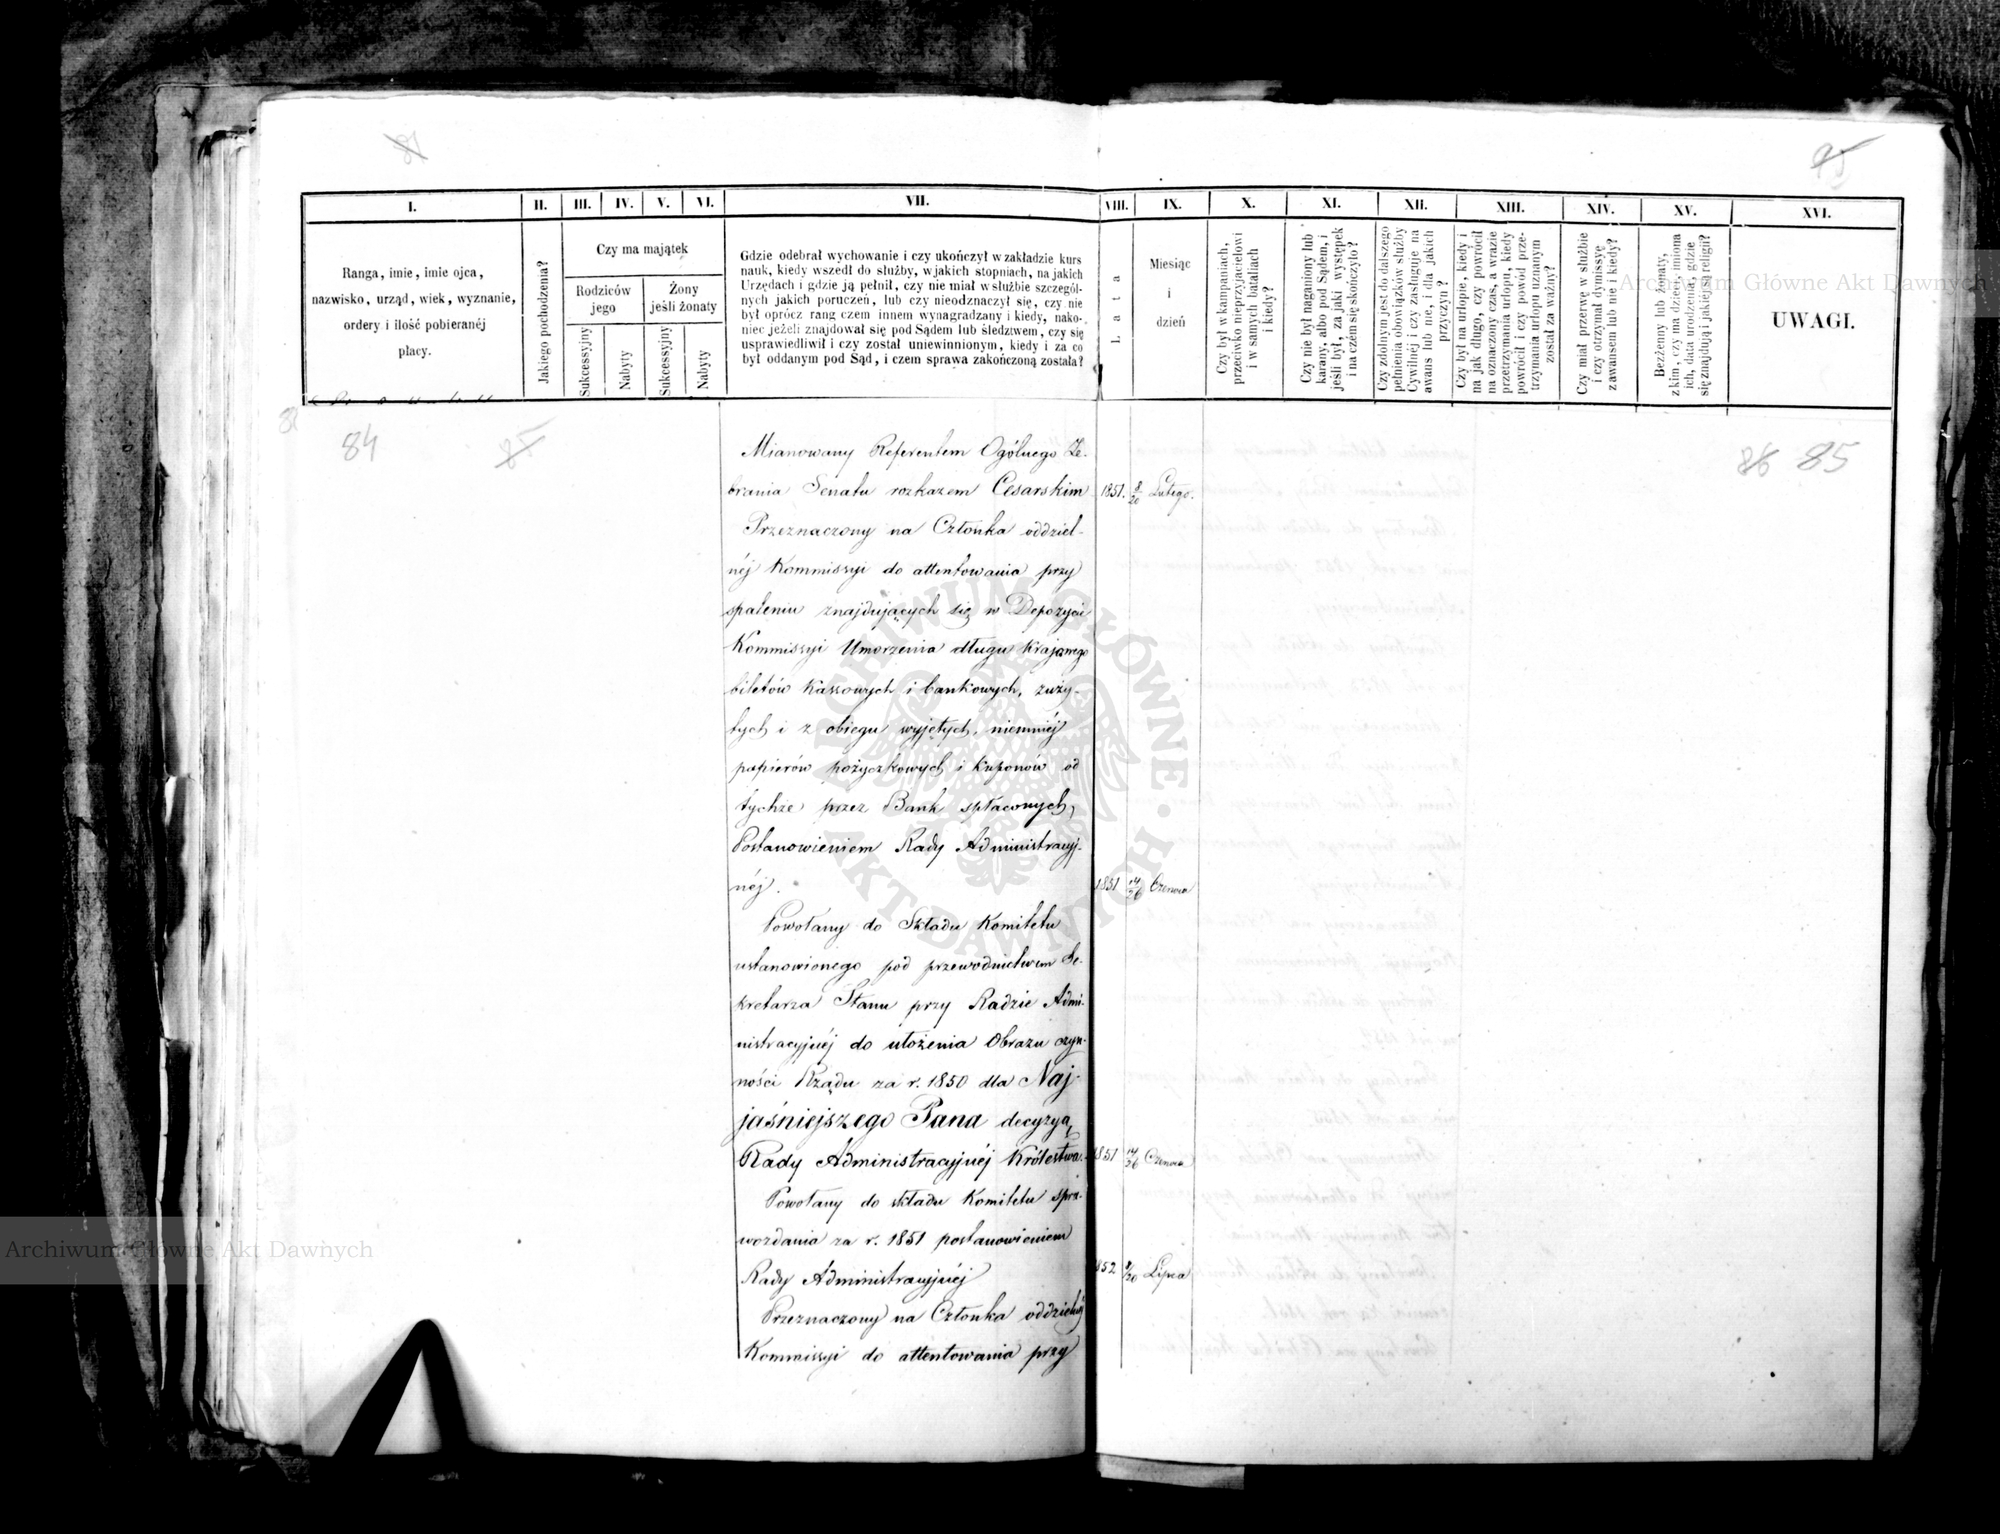 81
95
I.
II.
III.
IV.
V.
VI.
VII.
VIII.
IX.
X.
XI.
XII.
XIII.
XIV.
XV.
XVI.
Ranga, imie, imie ojca,
nazwisko, urząd, wiek, wyznanie,
ordery i ilość pobieranéj
płacy.
Jakiego pochodzenia?
Czy ma majątek
Rodziców
jego
Żony
jeśli żonaty
Sukcessyjny
Nabyty
Sukcessyjny
Nabyty
Gdzie odebrał wychowanie i czy ukończył w zakładzie kurs
nauk, kiedy wszedł do służby, w jakich stopniach, na jakich
Urzędach i gdzie ją pełnił, czy nie miał w służbie szczegól-
nych jakich poruczeń, lub czy nieodznaczył się, czy nie
był oprócz rang czem innem wynagradzany i kiedy, nako-
niec jeżeli znajdował się pod Sądem lub śledztwem, czy się
usprawiedliwił i czy został uniewinnionym, kiedy i za co
był oddanym pod Sąd, i czem sprawa zakończoną została?
Lata
Miesiąc
i
dzień
Czy był w kampaniach,
przeciwko nieprzyjacielowi
i w samych bataliach
i kiedy?
Czy nie był naganiony lub
karany, albo pod Sądem, i
jeśli był, za jaki występek
i na czém się skończyło?
Czy zdolnym jest do dalszego
pełnienia obowiązków służby
Cywilnéj i czy zasługuje na
awans lub nie, i dla jakich
przyczyn?
Czy był na urlopie, kiedy i
na jak długo, czy powrócił
na oznaczony czas, a wrazie
przetrzymania urlopu, kiedy
powrócił i czy powód prze-
trzymania urlopu uznanym
został za ważny?
Czy miał przerwę w służbie
i czy otrzymał dymissyę
z awansem lub nie i kiedy?
Bezżenny lub żonaty,
z kim, czy ma dzieci, imiona
ich, data urodzenia, gdzie
się znajdują i jakiej są religii?
UWAGI.
84
85
86 85
Mianowany Referentem Ogólnego Ze-
brania Senatu rozkazem Cesarskim 1851. 8/20 Lutego.
Przeznaczony na Członka oddziel-
néj Kommissyi do attentowania przy
spaleniu znajdujących się w Depozycie
Kommissyi Umorzenia długu Krajowego
biletów Kassowych i bankowych, zuży-
tych i z obiegu wyjętych, niemniéj
papierów pożyczkowych i kuponów od
tychże przez Bank spłaconych,
Postanowieniem Rady Administracyj-
néj. 1851 14/26 Czerwca
Powołany do Składu Komitetu
ustanowionego pod przewodnictwem Se-
kretarza Stanu przy Radzie Admi-
nistracyjnéj do ułożenia Obrazu czyn-
ności Rządu za r. 1850 dla Naj-
jaśniejszego Pana decyzyą
Rady Administracyjnéj Królestwa. 1851 14/26 Czerwca
Powołany do składu Komitetu spra-
wozdania za r. 1851 postanowieniem
Rady Administracyjnéj 1852 8/20 Lipca
Przeznaczony na Członka oddzielnéj
Kommissyi do attentowania przy
Archiwum Główne Akt Dawnych
Archiwum Główne Akt Dawnych
ARCHIWUM GŁÓWNE AKT DAWNYCH